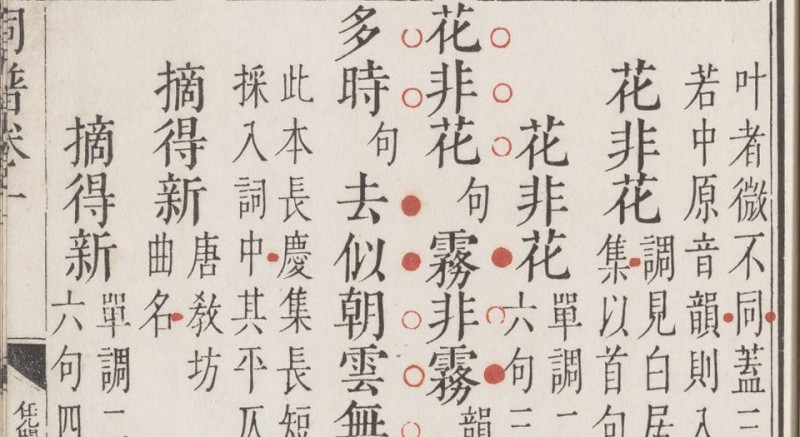 叶者微不同蓋三
若中原音韻則入
花非花
調見白居
集以首句
花非花
單調二
六句三
花非花句霧非霧韻
多時句去似朝雲無
此本長慶集長短
採入詞中其平仄
摘得新
唐教坊
曲名
摘得新
單調二
六句四
詞譜卷一